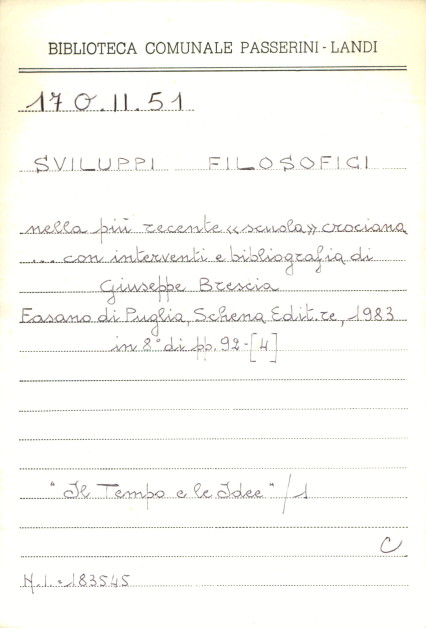 BIBLIOTECA COMUNALE PASSERINI - LANDI
170.II.51
SVILUPPI FILOSOFICI
nella più recente «scuola» crociana
... con interventi e bibliografia di
Giuseppe Brescia
Fasano di Puglia, Schena Edit.re, 1983
in 8° di pp. 92-[4]
"Il Tempo e le Idee" / 1
C
N.I. = 183545